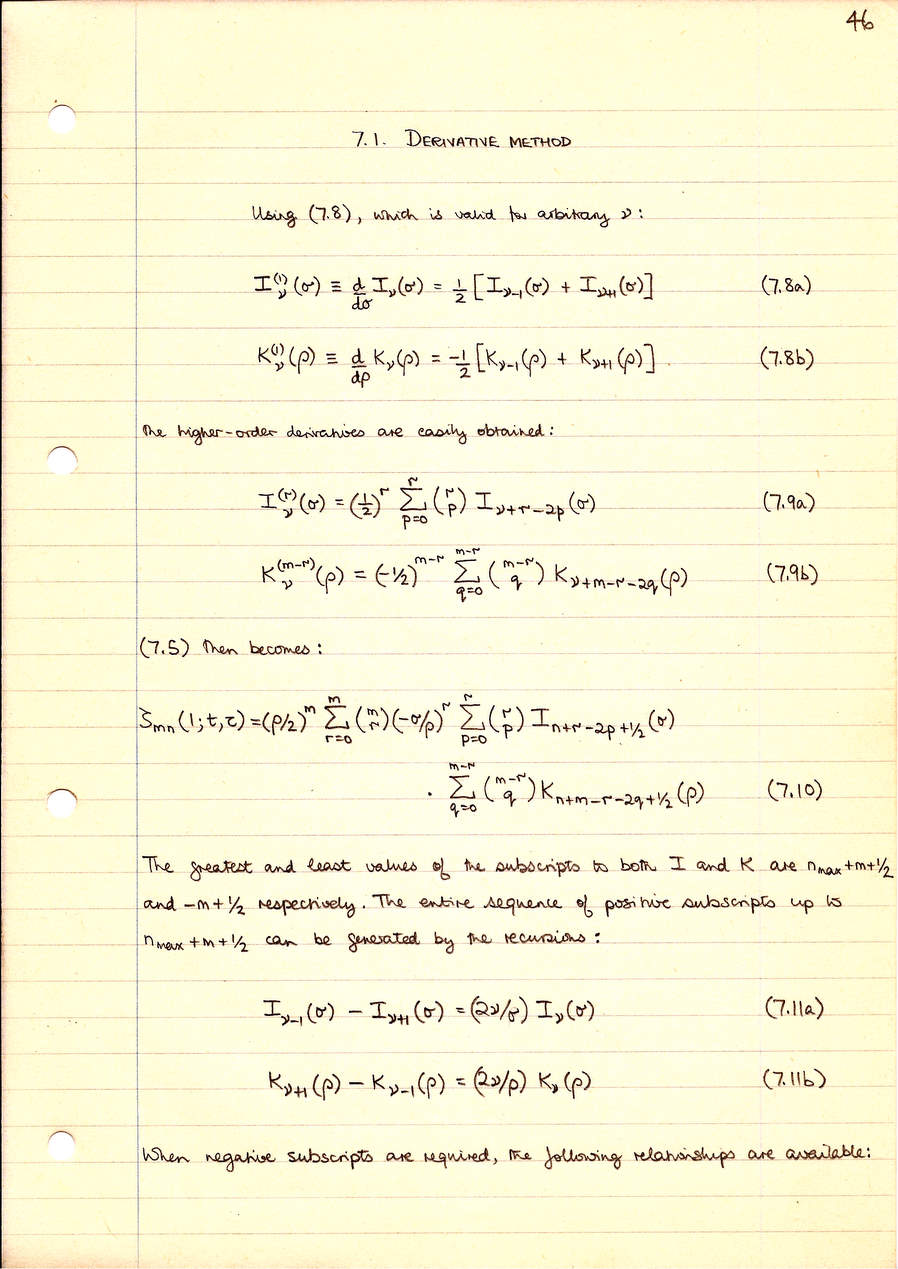 46
7.1. DERIVATIVE METHOD
Using (7.8), which is valid for arbitrary ν:
I_ν^(1)(σ) ≡ d/dσ I_ν(σ) = 1/2 [I_ν-1(σ) + I_ν+1(σ)] (7.8a)
K_ν^(1)(ρ) ≡ d/dρ K_ν(ρ) = -1/2 [K_ν-1(ρ) + K_ν+1(ρ)]. (7.8b)
The higher-order derivatives are easily obtained:
I_ν^(r)(σ) = (1/2)^r Σ_{p=0}^{r} (r p) I_ν+r-2p(σ) (7.9a)
K_ν^(m-r)(ρ) = (-1/2)^m-r Σ_{q=0}^{m-r} (m-r q) K_ν+m-r-2q(ρ) (7.9b)
(7.5) then becomes:
ζ_mn(1;t,τ) = (ρ/2)^m Σ_{r=0}^{m} (m r)(-σ/ρ)^r Σ_{p=0}^{r} (r p) I_n+r-2p+1/2(σ)
. Σ_{q=0}^{m-r} (m-r q) K_n+m-r-2q+1/2(ρ) (7.10)
The greatest and least values of the subscripts to both I and K are n_max+m+1/2
and -m+1/2 respectively. The entire sequence of positive subscripts up to
n_max+m+1/2 can be generated by the recursions:
I_ν-1(σ) - I_ν+1(σ) = (2ν/σ) I_ν(σ) (7.11a)
K_ν+1(ρ) - K_ν-1(ρ) = (2ν/ρ) K_ν(ρ) (7.11b)
When negative subscripts are required, the following relationships are available: